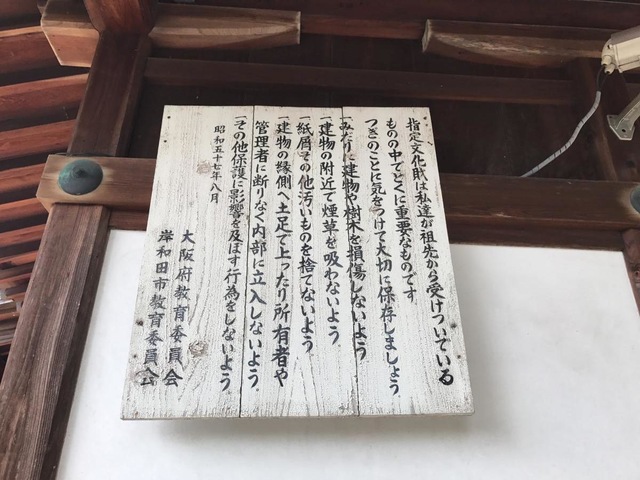 指定文化財は私達が祖先から受けついでいる
ものの中でとくに重要なものです
つぎのことに気をつけて大切に保存しましょう
一みだりに建物や樹木を損傷しないよう
一建物の附近で煙草を吸わないよう
一紙屑その他汚いものを捨てないよう
一建物の縁側へ土足で上ったり所有者や
管理者に断りなく内部に立入しないよう
一その他保護に影響を及ぼす行為をしないよう
昭和五十七年八月
大阪府教育委員会
岸和田市教育委員会